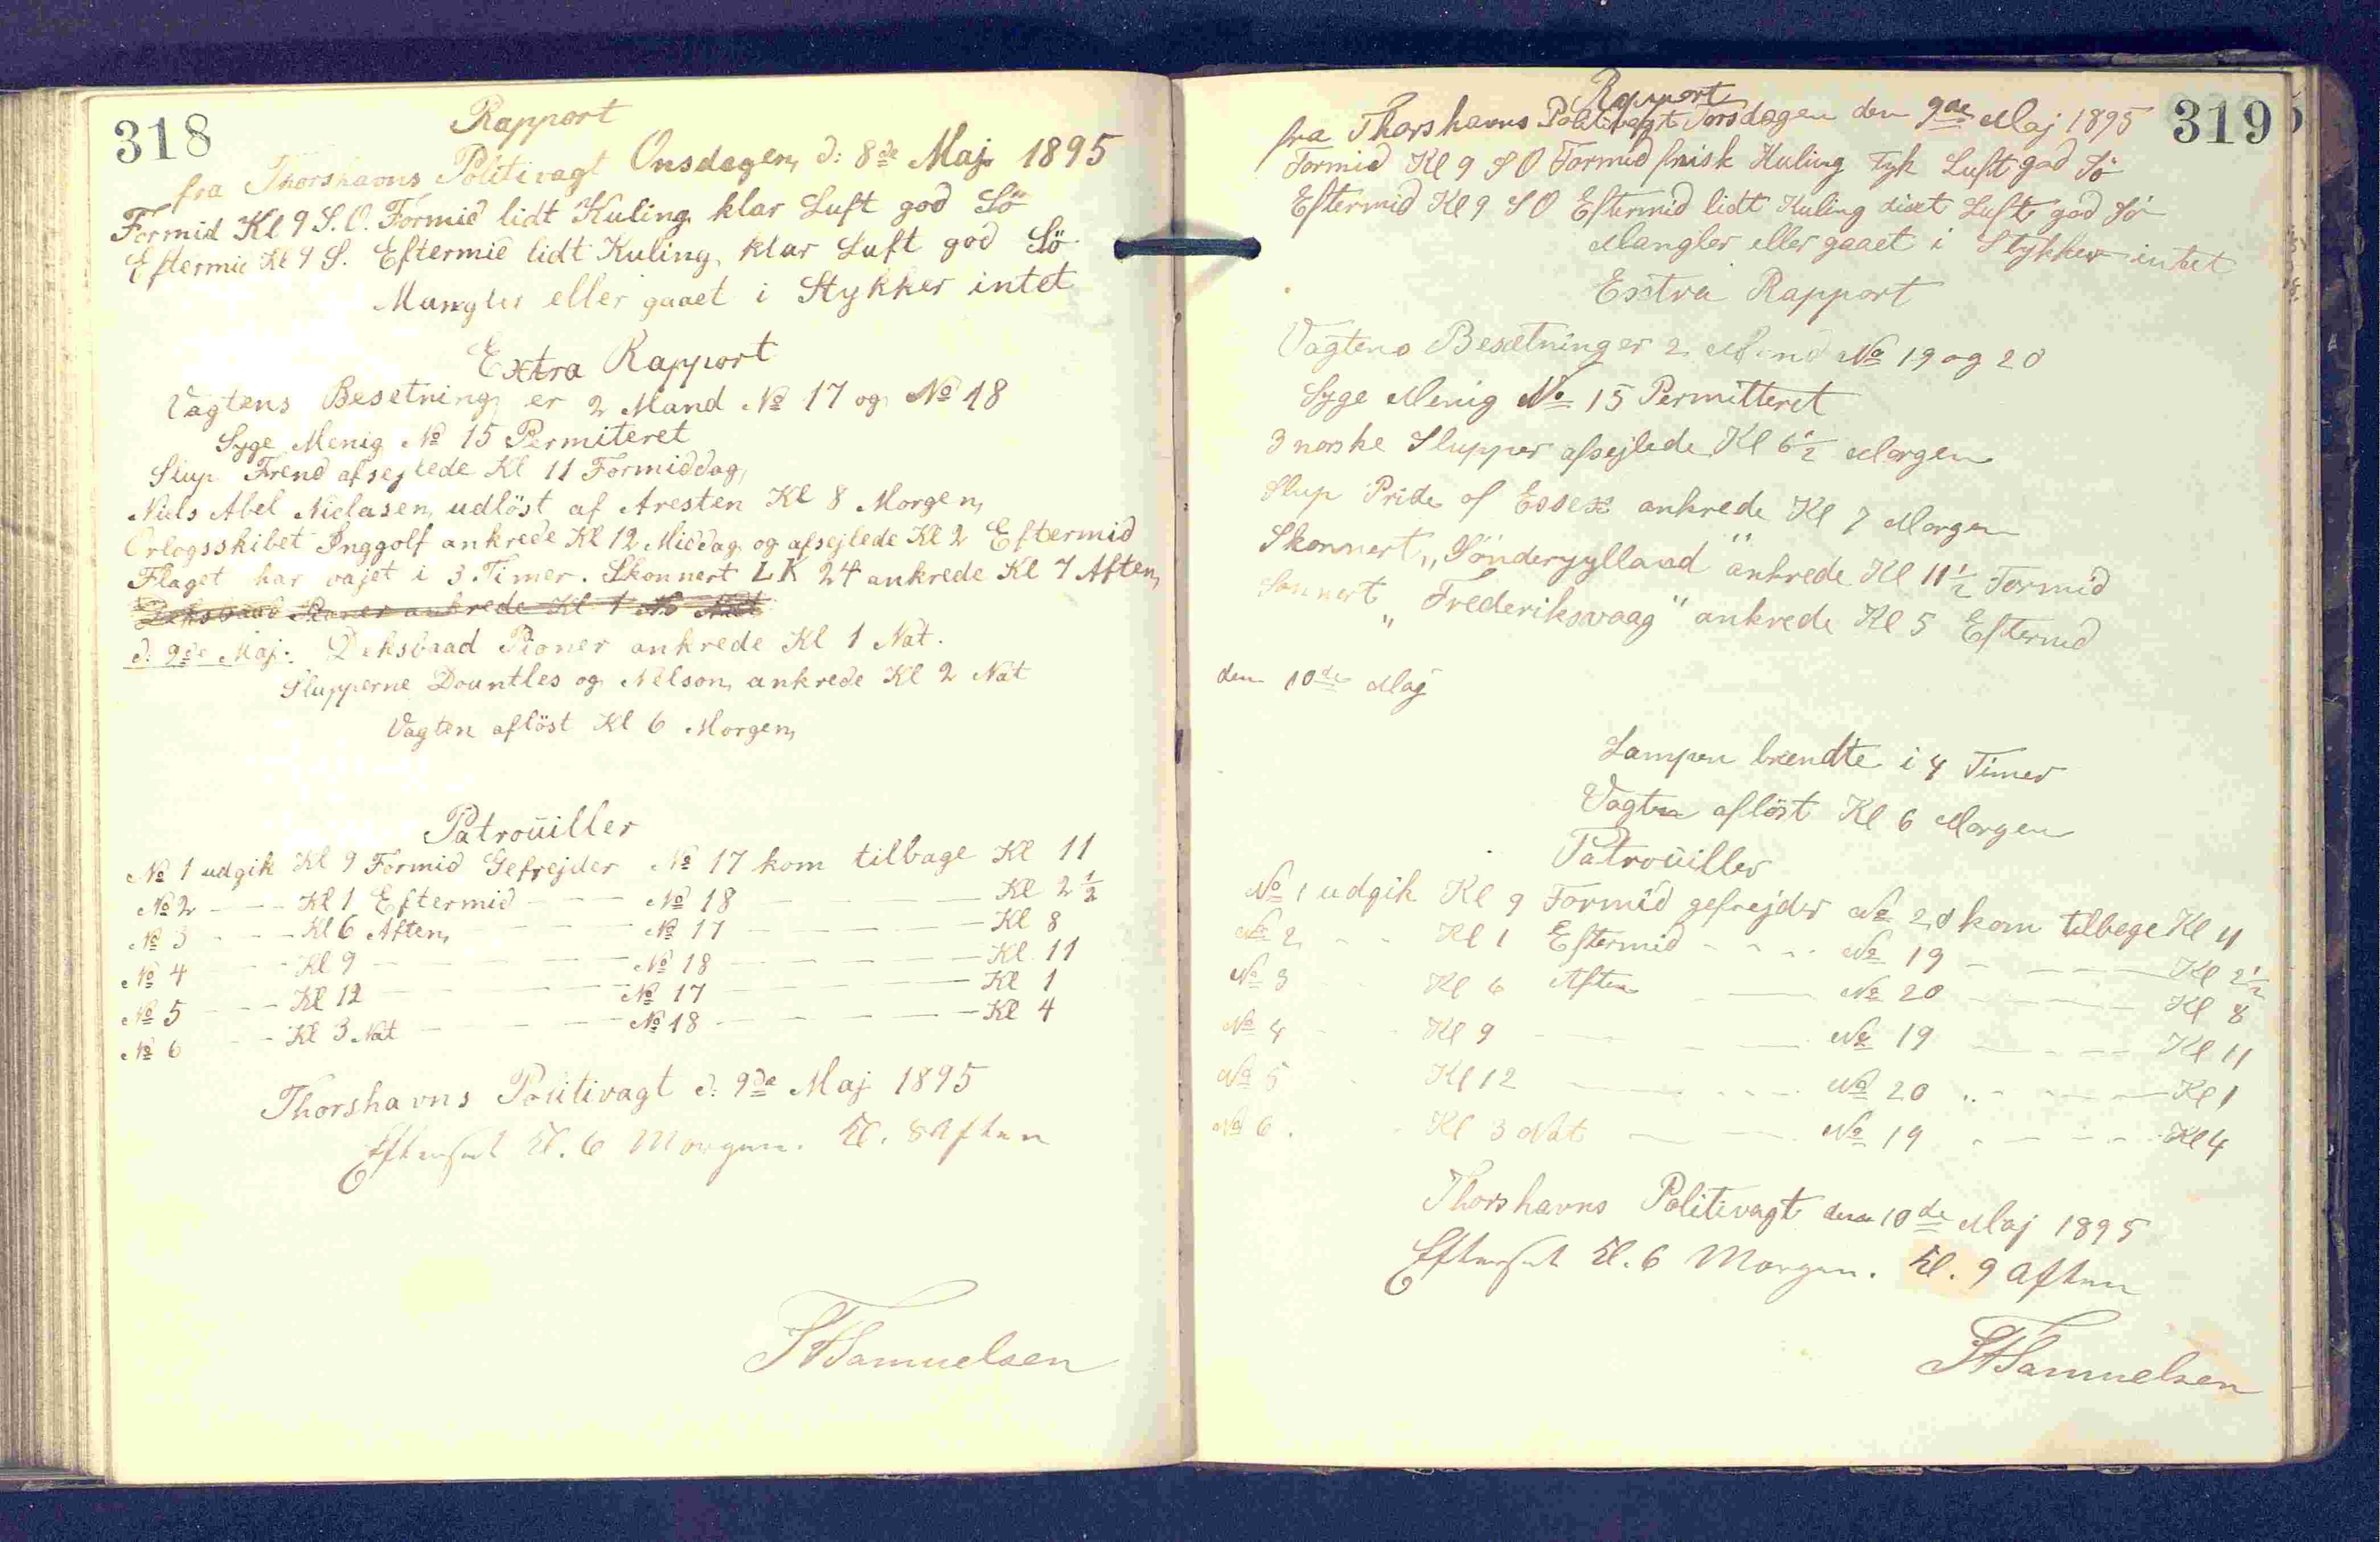 318
Rapport
fra Thorshavns Politivagt Onsdagen, d: 8de Maj 1895
Formid Kl 9 S.O. Formid lidt Kuling klar Luft god Sö
Eftermid Kl 9 S. Eftermid lidt Kuling klar Luft god Sö
Mangler eller gaaet i Stykker intet
Extra Rapport
Vagtens Besetning er 2 Mand No 17 og No 18
Syge Menig No 15 Permiteret
Slup Frend afsejlede Kl 11 Formiddag,
Niels Abel Niclasen, udlöst af Aresten Kl 8 Morgen,
Orlogsskibet Inggolf ankrede Kl 12 Middag og afsejlede Kl 2 Eftermid
Flaget har vajet i 3. Timer. Skonnert LK 24 ankrede Kl 7 Aften,
Deksbaad Pioner ankrede Kl 1
d: 9de Maj. Deksbaad Pioner ankrede Kl 1 Nat.
Slupperne Dountles og Nelson, ankrede Kl 2 Nat
Vagten aflöst Kl 6 Morgen,
Patrouiller
No 1 udgik Kl 9 Formid Gefrejder No 17 kom tilbage Kl 11
No 2 - - - Kl 1 Eftermid - - - No 18 - - - Kl 2 1/2
No 3 - - - Kl 6 Aften, - - - No 17 - - - Kl 8
No 4 - - - Kl 9 - - - No 18 - - - Kl 11
No 5 - - - Kl 12 - - - No 17 - - - Kl 1
No 6 - - - Kl 3 Nat - - - No 18 - - - Kl 4
Thorshavns Politivagt d: 9de Maj 1895
Efterset Kl. 6 Morgen. Kl. 8 Aften
Samuelsen
319
Rapport
fra Thorshavns Politivagt Torsdagen den 9de Maj 1895
Formid Kl 9 SO Formid frisk Kuling Tyk Luft god Sö
Eftermid Kl 9 SO Eftermid lidt Kuling diset Luft god Sö
Mangler eller gaaet i Stykker intet
Extra Rapport
Vagtens Besætning er 2 Mand No 19 og 20
Syge Menig No 15 Permitteret
3 norske Slupper afsejlede Kl 6 1/2 Morgen
Slup Pride of Essex ankrede Kl 7 Morgen
Skonnert „Sönderjylland" ankrede Kl 11 1/2 Formid
Sonnert „Frederiksvaag" ankrede Kl 5 Eftermid
den 10de Maj
Lampen brendte i 4 Timer
Vagten aflöst Kl 6 Morgen
Patrouiller
No 1 udgik Kl 9 Formid gefrejder No 20 kom tilbage Kl 11
No 2 - - Kl 1 Eftermid - - - No 19 - - - Kl 2 1/2
No 3 Kl 6 Aften - - - No 20 - - - Kl 8
No 4 - - Kl 9 - - - No 19 - - - Kl 11
No 5 - Kl 12 - - - No 20 - - - Kl 1
No 6 . - Kl 3 Nat - - - No 19 - - - Kl 4
Thorshavns Politivagt den 10de Maj 1895
Efterset Kl. 6 Morgen. Kl. 9 Aften
Samuelsen